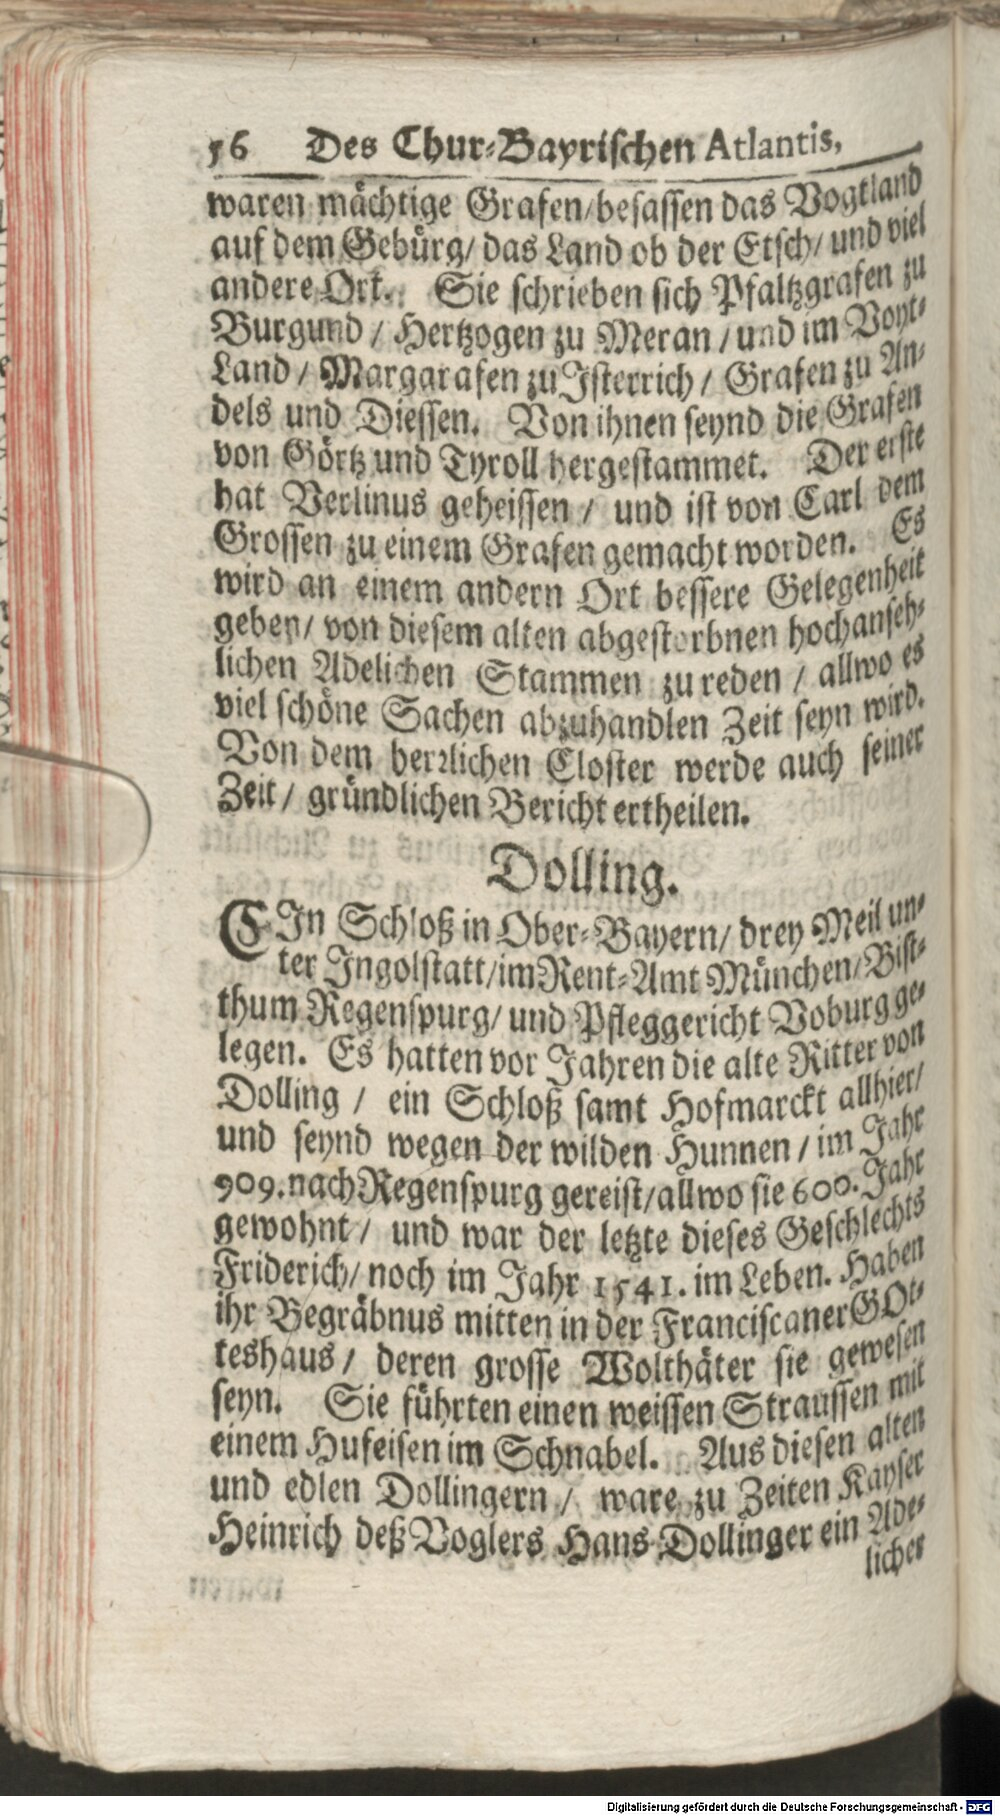 56 Des Chur-Bayrischen Atlantis,
waren mächtige Grafen/besassen das Vogtland
auf dem Gebürg/ das Land ob der Etsch/ und viel
andere Ort. Sie schrieben sich Pfaltzgrafen zu
Burgund / Hertzogen zu Meran / und im Voyt-
Land / Marggrafen zu Isterrich / Grafen zu An-
dels und Diessen. Von ihnen seynd die Grafen
von Görtz und Tyroll hergestammet. Der erste
hat Verlinus geheissen / und ist von Carl dem
Grossen zu einem Grafen gemacht worden. Es
wird an einem andern Ort bessere Gelegenheit
geben/ von diesem alten abgestorbnen hochanseh-
lichen Adelichen Stammen zu reden / allwo es
viel schöne Sachen abzuhandlen Zeit seyn wird.
Von dem herrlichen Closter werde auch seiner
Zeit / gründlichen Bericht ertheilen.
Dolling.
EIn Schloß in Ober-Bayern/ drey Meil un-
ter Ingolstatt/im Rent-Amt München/Bist-
thum Regenspurg/ und Pfleggericht Voburg ge-
legen. Es hatten vor Jahren die alte Ritter von
Dolling / ein Schloß samt Hofmarckt allhier/
und seynd wegen der wilden Hunnen / im Jahr
909. nach Regenspurg gereist/allwo sie 600. Jahr
gewohnt / und war der letzte dieses Geschlechts
Friderich/ noch im Jahr 1541. im Leben. Haben
ihr Begräbnus mitten in der Franciscaner GOt-
teshaus / deren grosse Wolthäter sie gewesen
seyn. Sie führten einen weissen Straussen mit
einem Hufeisen im Schnabel. Aus diesen alten
und edlen Dollingern / ware zu Zeiten Kayser
Heinrich deß Voglers Hans Dollinger ein Ade-
licher
Digitalisierung gefördert durch die Deutsche Forschungsgemeinschaft - DFG